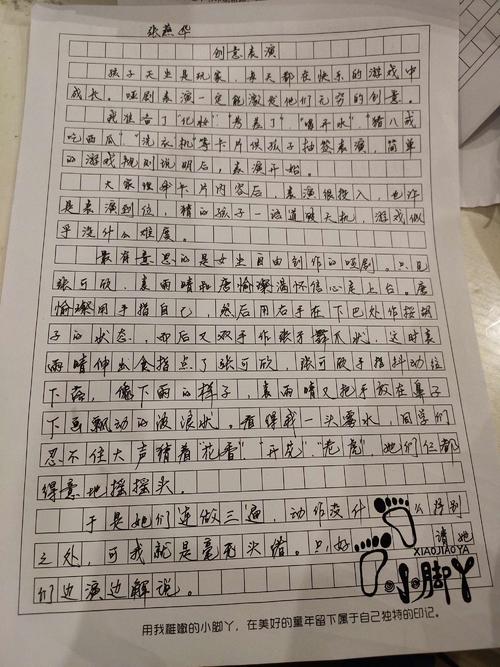 张燕华
创意表演
孩子天生是玩家，每天都在快乐的游戏中
成长。哑剧表演一定能激发他们无穷的创意。
我准备了"化妆""考差了""喝开水""猪八戒
吃西瓜""洗衣机"等卡片供孩子抽签表演，简单
的游戏规则说明后，表演开始。
大家理解卡片内容后，表演很投入，也许
是表演到位，猜的孩子一语道破天机，游戏似
乎没什么难度。
最有意思的是女生自由创作的哑剧。只见
张可欣、袁雨晴和唐愉璨满怀信心走上台。唐
愉璨用手指自己，然后用右手在下巴处作捋胡
子的状态，而后又双手作张牙舞爪状，这时袁
雨晴伸出食指点了张可欣，张可欣手指抖动往
下落，像下雨的样子，袁雨晴又把手放在鼻子
下画飘动的波浪状。看得我一头雾水，同学们
忍不住大声猜着"花香""开花""老虎"，她们仨都
得意地摇摇头。
于是她们连做三遍，动作没什么特别
之处，可我就是毫无头绪。只好请她
们边演边解说。
XIAOJIAOYA
小脚丫
用我稚嫩的小脚丫，在美好的童年留下属于自己独特的印记。